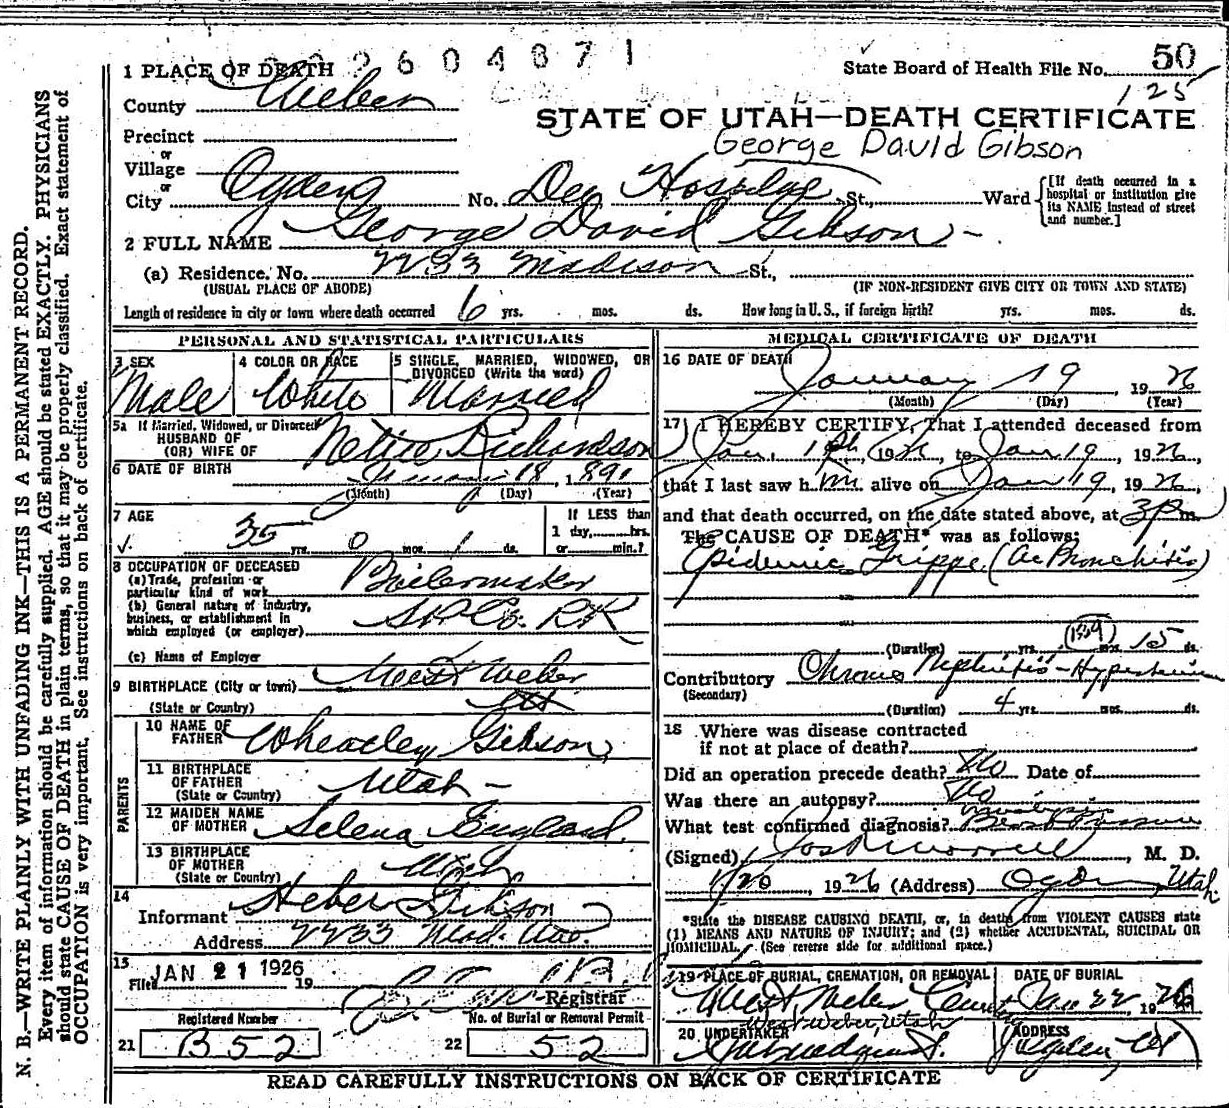 2604871
1 PLACE OF DEATH
State Board of Health File No. 50
125
County Weber
STATE OF UTAH—DEATH CERTIFICATE
George David Gibson
Precinct
or
Village
or
City Ogden No. Dee Hospital St., Ward
[If death occurred in a hospital or institution give its NAME instead of street and number.]
2 FULL NAME George David Gibson
(a) Residence. No. 2233 Madison St.,
(USUAL PLACE OF ABODE) (IF NON-RESIDENT GIVE CITY OR TOWN AND STATE)
Length of residence in city or town where death occurred 6 yrs. mos. ds. How long in U. S., if foreign birth? yrs. mos. ds.
PERSONAL AND STATISTICAL PARTICULARS
3 SEX Male
4 COLOR OR RACE White
5 SINGLE, MARRIED, WIDOWED, OR DIVORCED (Write the word) Married
5a If Married, Widowed, or Divorced
HUSBAND OF
(OR) WIFE OF Nettie Richardson
6 DATE OF BIRTH January 18, 1891
(Month) (Day) (Year)
7 AGE 35 yrs. 0 mos. 1 ds.
If LESS than
1 day, hrs.
or min.?
8 OCCUPATION OF DECEASED
(a) Trade, profession or
particular kind of work Boilermaker
(b) General nature of Industry,
business, or establishment in
which employed (or employer) S.P. Co. RR
(c) Name of Employer
9 BIRTHPLACE (City or town) West Weber
(State or Country)
PARENTS
10 NAME OF
FATHER Wheatley Gibson
11 BIRTHPLACE
OF FATHER
(State or Country) Utah
12 MAIDEN NAME
OF MOTHER Selena England
13 BIRTHPLACE
OF MOTHER
(State or Country) Utah
14
Informant Heber Gibson
Address 2233 Mad. Ave.
15
Filed JAN 21 1926 19
Registrar
Registered Number No. of Burial or Removal Permit
21 B52 22 52
MEDICAL CERTIFICATE OF DEATH
16 DATE OF DEATH
January 19 1926
(Month) (Day) (Year)
17 I HEREBY CERTIFY, That I attended deceased from
Jan. 1926, to Jan 19, 1926,
that I last saw him alive on Jan 19, 1926,
and that death occurred, on the date stated above, at 3 p m.
The CAUSE OF DEATH* was as follows:
Epidemic Grippe (Ac Bronchitis)
(Duration) yrs. mos. 15 ds.
Contributory Chronic Nephritis - Hypertension
(Secondary)
(Duration) 4 yrs. mos. ds.
18 Where was disease contracted
if not at place of death?
Did an operation precede death? No Date of
Was there an autopsy? No
What test confirmed diagnosis? Urinalysis Blood Pressure
(Signed) Jos R Morrell, M. D.
1/20, 1926 (Address) Ogden, Utah
*State the DISEASE CAUSING DEATH, or, in deaths from VIOLENT CAUSES state
(1) MEANS AND NATURE OF INJURY; and (2) whether ACCIDENTAL, SUICIDAL OR
HOMICIDAL. (See reverse side for additional space.)
19 PLACE OF BURIAL, CREMATION, OR REMOVAL DATE OF BURIAL
West Weber Cemetery Jan 22 1926
West Weber, Utah
20 UNDERTAKER ADDRESS
Ogden, Ut
READ CAREFULLY INSTRUCTIONS ON BACK OF CERTIFICATE
N. B.—WRITE PLAINLY WITH UNFADING INK—THIS IS A PERMANENT RECORD.
Every item of information should be carefully supplied. AGE should be stated EXACTLY. PHYSICIANS
should state CAUSE OF DEATH in plain terms, so that it may be properly classified. Exact statement of
OCCUPATION is very important. See instructions on back of certificate.